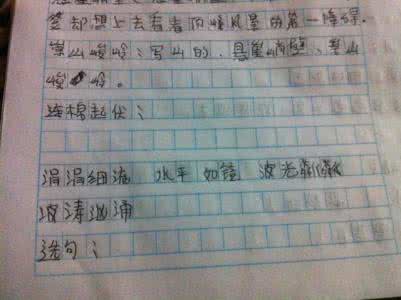 登却想上去看看顶峰风景的第一阵缘.
崇山峻岭:写山的.悬崖峭壁、崇山
峻岭。
连棉起伏:
涓涓细流 水平如镜 波光粼粼
波涛汹涌
选句: